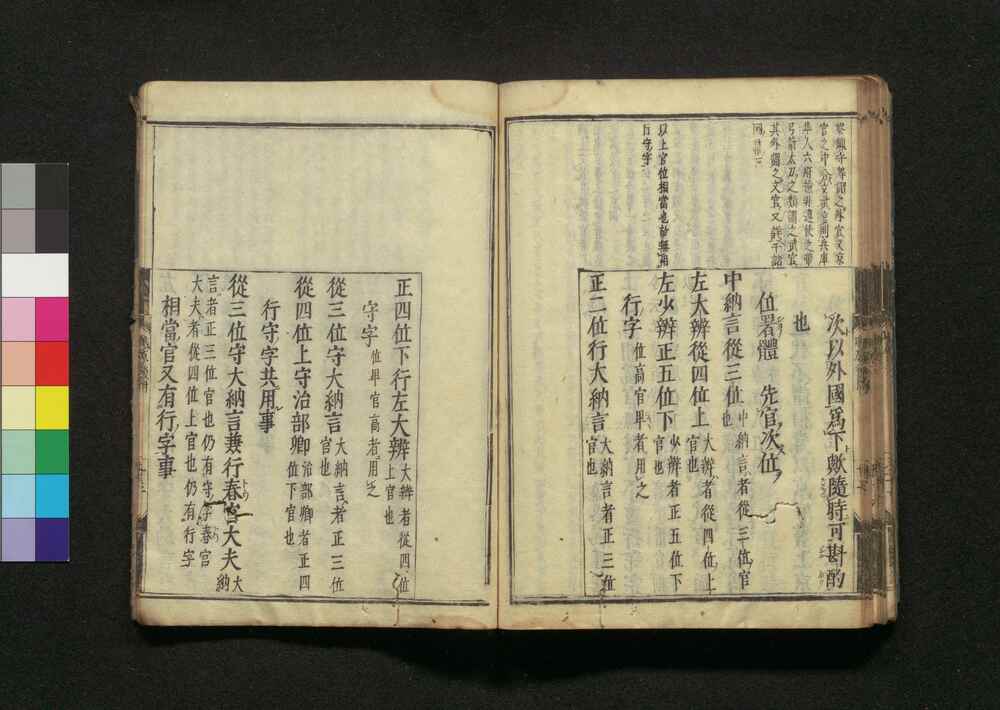 官之中
隼人六府
弓箭太刀之類謂之武官
其外謂之文官又
以上官位相當也故無
行守字
次以外國爲下歟隨時可斟酌
也
位署體　先官次位
中納言從三位 中納言者從三位官也
左大辨從四位上 大辨者從四位上官也
左少辨正五位下 少辨者正五位下官也
行字 位高官卑者用之
正二位行大納言 大納言者正三位官也
正四位下行左大辨 大辨者從四位上官也
守字 位卑官高者用之
從三位守大納言 大納言者正三位官也
從四位上守治部卿 治部卿者正四位下官也
行守字共用事
從三位守大納言兼行春宮大夫 大納
言者正三位官也仍有守字春宮
大夫者從四位上官也仍有行字
相當官又有行字事